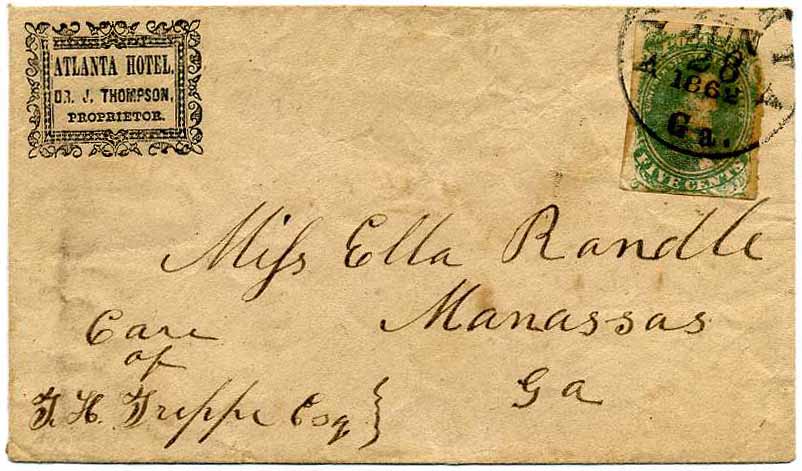 ATLANTA HOTEL.
DR. J. THOMPSON,
PROPRIETOR.
JUN
28
1862
Ga.
FIVE CENTS
Miſs Ella Randle
Manassas
Ga
Care
of
T. H. Trippe Esq